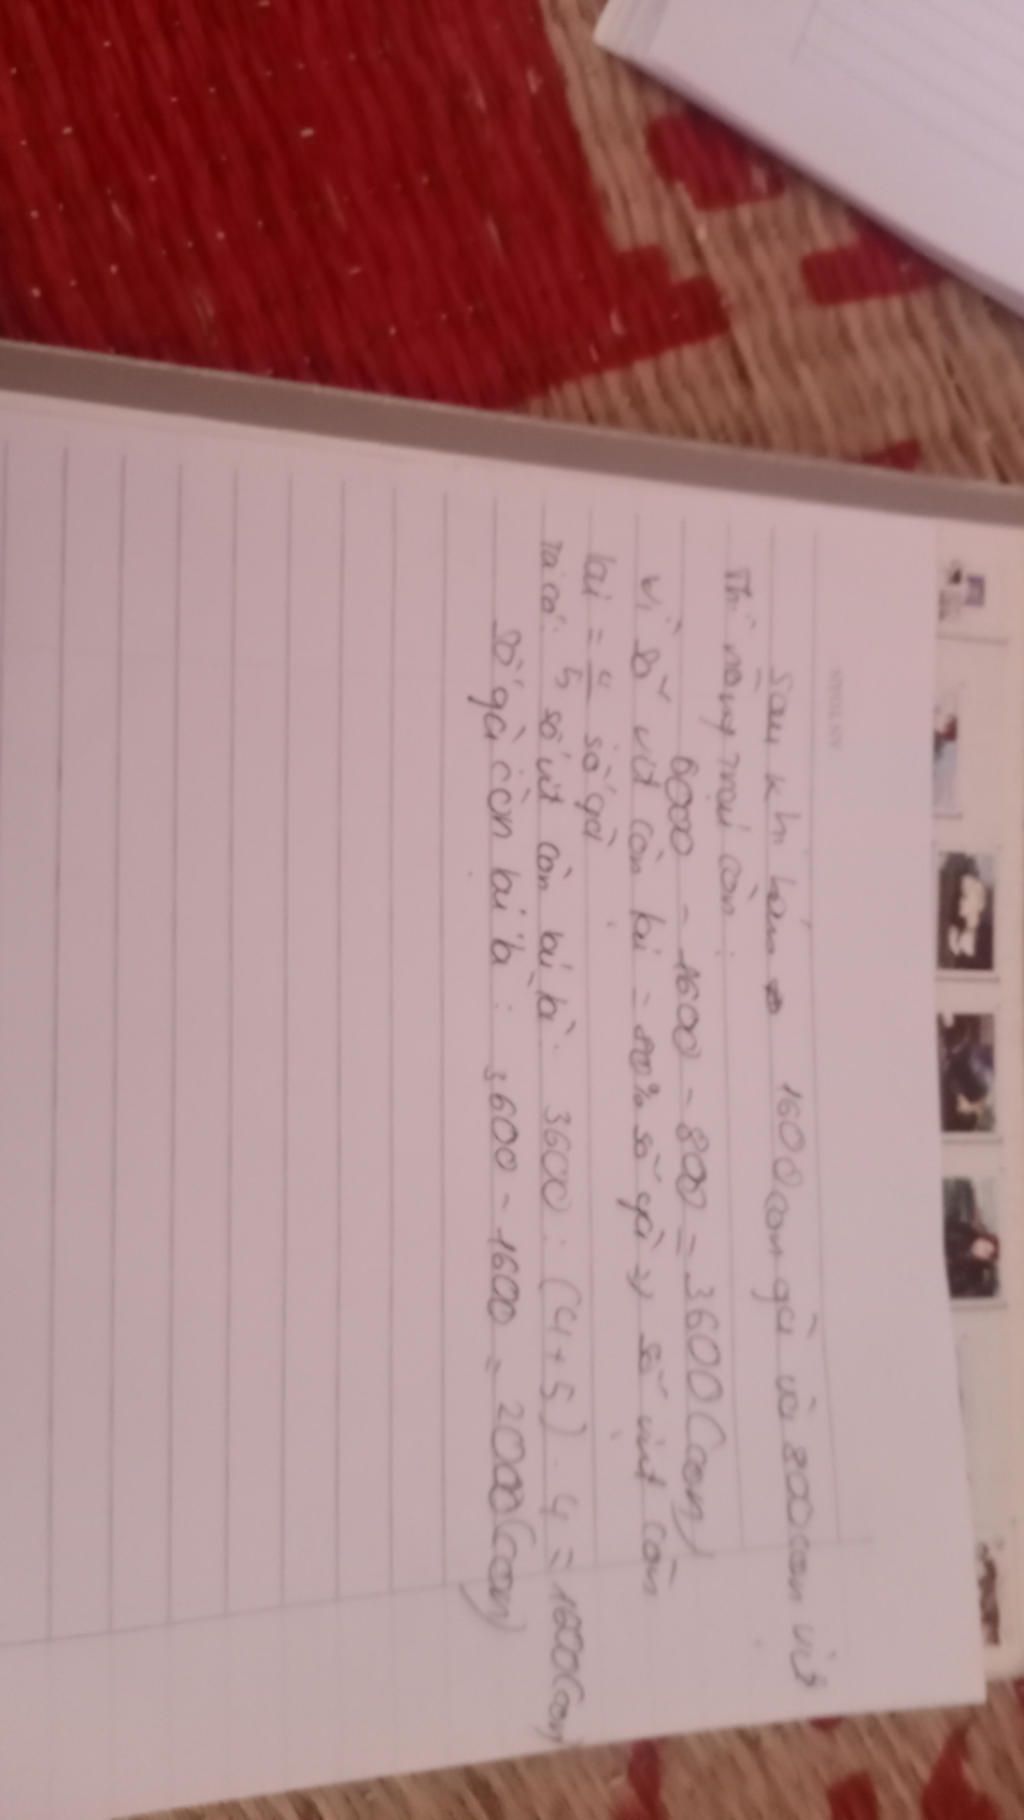 Sau khi bán 1600 con gà và 800 con vịt
Thì nông trại còn :
6000 - 1600 - 800 = 3600 (con)
Vì số vịt còn lại = 80% số gà => số vịt còn
lại = 4/5 số gà
Ta có: số vịt còn lại là: 3600 : (4+5) . 4 = 1600 (con)
Số gà còn lại là : 3600 - 1600 = 2000 (con)